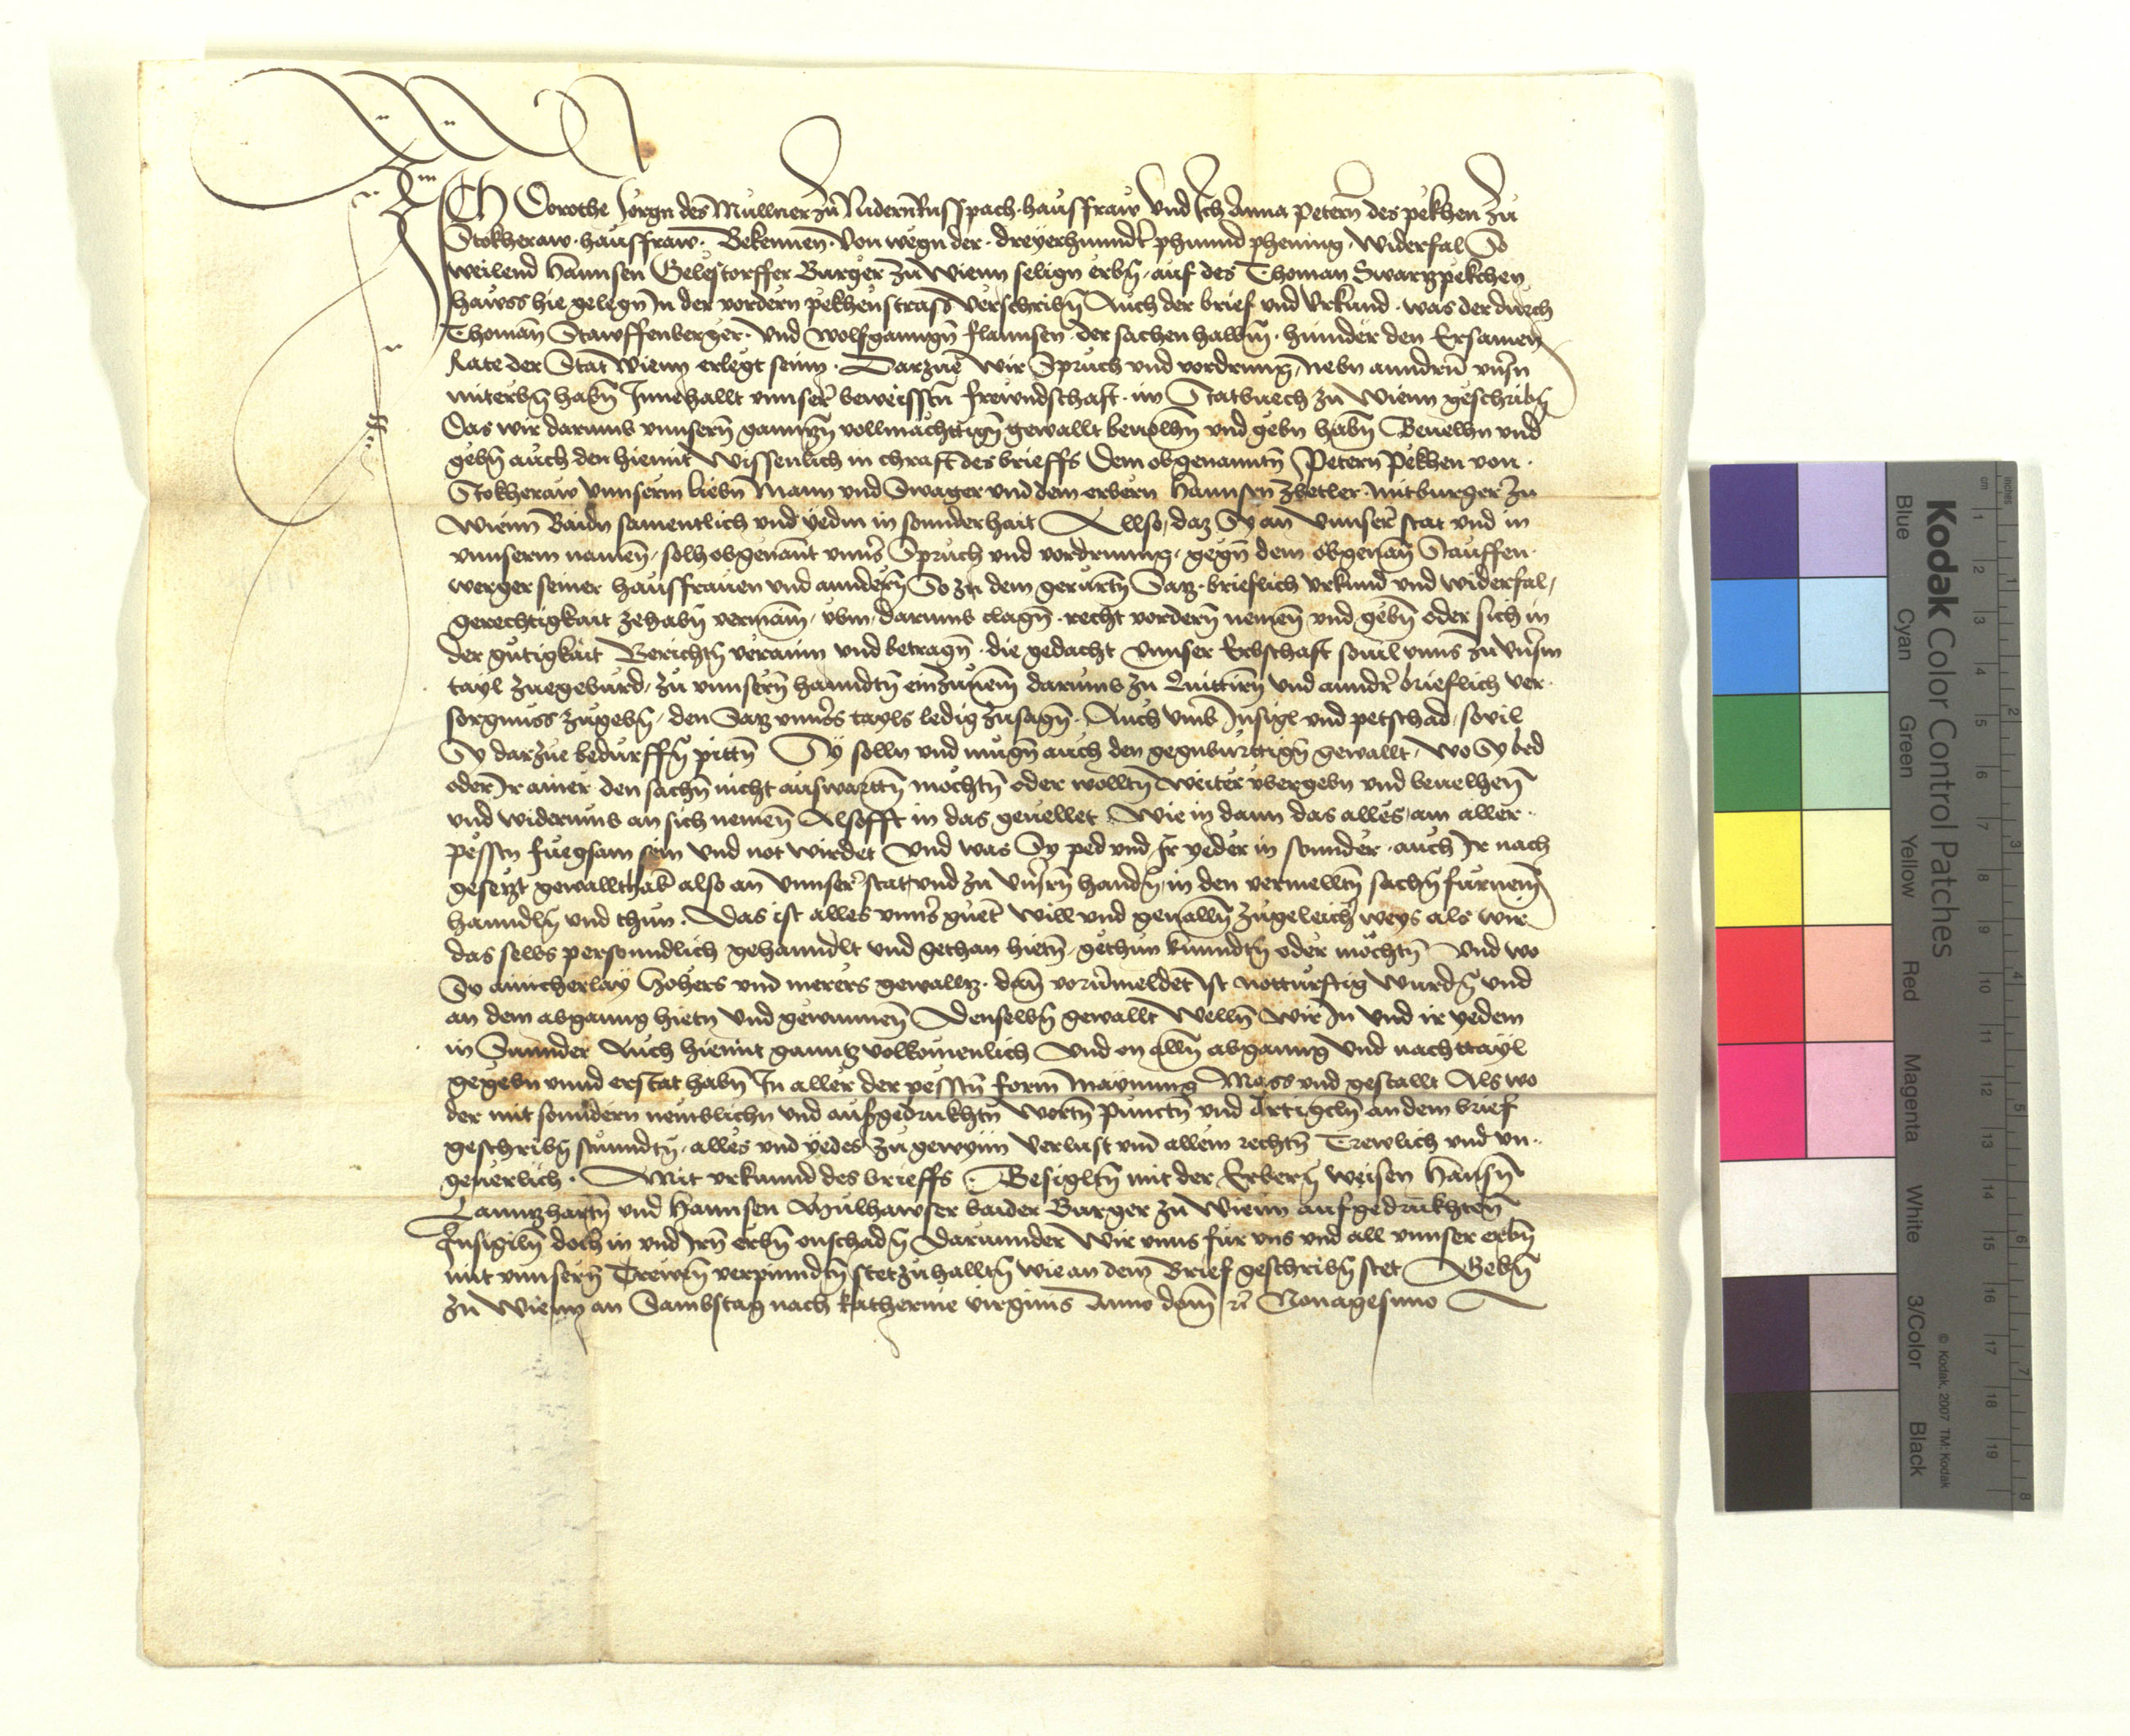 Ich Dorothe Jorgn des Mullner zu Nidern Russpach hausfraw Vnd Ich Anna Petern des pekhen zu
Stokheraw hausfraw Bekennen Von wegn der dreyerhunndt phunnd phening widerfal So
weilend hannsen Gelestorffer Burger zu Wienn seligen erbn auf des Thoman Swartzpekchen
hawss hie gelegn In der vordern pekhenstrass verschribn Auch der brief vnd Vrkund was der durch
Thoman Stawffenberger vnd Wolfganngn flannsen der sachen halbm hinnder den Ersamen
Rate der Stat Wienn erlegt seinn Darzue wir Spruch vnd vordrung nebn anndrn vnsn
miterbn habn Innehallt vnnser beweissten frewndschaft im Statbuech zu Wienn geschribn
Das wir darumb vnnsern ganntzn vollmachttign gewallt beuolhn vnd gebn habn Beuelhn vnd
gebn auch den hiemit Wissenlich in chraft des brieffs Dem obgenanntn Petern Pekhen von
Stokheraw Vnnserm liebn Mann vnd Swager vnd dem erbern hannsen Zbetler mitburger zu
Wienn Baidn samentlich vnd yedm in sonnderhait Allso daz Sy an Vnnser stat vnd in
vnnserm namen solh obgenant vnns Spruch vnd vordrunng gegn dem obgenan Stauffen
werger seiner hausfrauen vnd anndern So zu dem gerurtn Satz brieflich vrkund vnd widerfal
gerechtigkait zehabn vermain vbm darumb clagn recht vordern nemen vnd gebn oder sich in
der gutigkait Berichtn verainn vnd betragn die gedacht vnnser Erbschaft souil vnns zu vnsm
tayl zuegeburd zu vnnsern hanndtn einzunem darumb zu Quittirn vnd anndr brieflich ver
sorgnuss zugebn den Satz vnnsers tayls ledig zusagn Auch vmb Insigl vnd petschad souil
Sy darzue bedurffn pittn Sy solln vnd mugn auch den gegnburttign gewallt wo Sy bed
oder Ir ainer den sachn nicht auswarttn mochtn oder wolltn weiter vbergebn vnd beuelhen
vnd widerumb an sich nemen Alsofft in das geuellet Wie in dann das alles am aller
pessten fuegsam sein vnd not wirdet Vnd was Sy ped vnd Ir yeder in sunnder auch Ir nach
gesetzt gewallthab also an vnnser stat vnd zu vnsern handn in den vermelltn sachn furnem
hanndln vnd thun Das ist alles vnns guet will vnd geualln zugeleicher weys als wir
das selbs personndlich gehanndlt vnd gethan hietn gethun kunndtn oder mochtn Vnd wo
Sy ainicherlay Hohers vnd merers gewalltz dan vorumeldet ist notturftig wurdn vnd
an dem abganng hietn vnd gewunnen Denselbn gewallt Welln wir In vnd ir yedem
in Sunnder Auch hiemit ganntz volkomenlich Vnd on alln abganng vnd nachttayl
gegebn vnnd erstat habn In aller der pesstn form Maynung Mass vnd gestallt Als wo
der mit sonndern nemblichn vnd ausgedrukhtn Wortn Punctn vnd Artigcln an dem brief
geschribn stunndtn alles vnd yedes zu gewynn Verlust vnd allem rechtn Trewlich vnd vn
geuerlich Mit vrkunnd des brieffs Besigltn mit der Erbern Weisen Hansn
Lanntzhartn vnd Hannsen Mulhawser baider Burger zu Wienn aufgedrukhten
Insigiln doch in vnd Irn erbn onschadn Darunnder Wir vnns fur vns vnd all vnnser erbn
mit vnnsern Trewen verpinndtn stet zu halltn wie an dem Brief geschribn stet Gebn
zu Wienn an Sambstag nach Katherine virginis Anno dom rc Nonagesimo
Kodak Color Control Patches
Blue Cyan Green Yellow Red Magenta White 3/Color Black
© Kodak, 2007 TM: Kodak
inches 1 2 3 4 5 6 7 8
cm 1 2 3 4 5 6 7 8 9 10 11 12 13 14 15 16 17 18 19